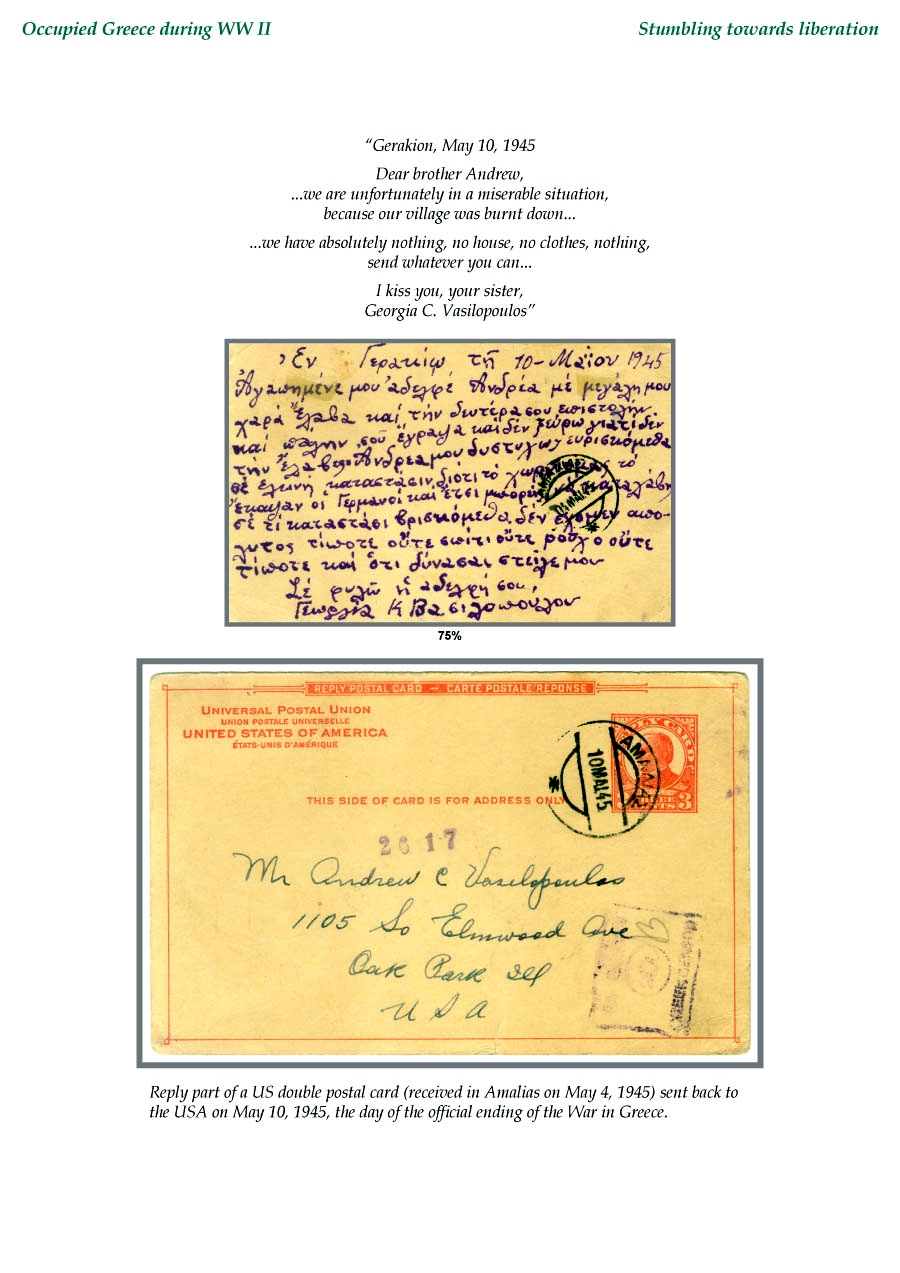 Occupied Greece during WW II
Stumbling towards liberation
“Gerakion, May 10, 1945
Dear brother Andrew,
...we are unfortunately in a miserable situation,
because our village was burnt down...
...we have absolutely nothing, no house, no clothes, nothing,
send whatever you can...
I kiss you, your sister,
Georgia C. Vasilopoulos”
Ἐν Γερακίῳ τῇ 10-Μαΐου 1945
Ἀγαπημένε μου ἀδελφέ Ἀνδρέα μέ μεγάλη μου
χαρά ἔλαβα καί τήν δευτέρα σου επιστολήν
καί πάλην σοῦ ἔγραψα καί δέν ξεύρω γιατί δέν
τήν ἔλαβες Ἀνδρέα μου δυστυχῶς ευρισκόμεθα
σέ ελεινή καταστασιν διότι τό το
έκαψαν οἱ Γερμανοί καί ἔτσι μπορεῖς νά καταλάβης
σέ τί καταστάσι βρισκόμεθα δέν ἔχομεν απο-
λυτος τίποτε οὔτε σπίτι οὔτε ροῦχο οὔτε
τίποτε καί ὅτι δύνασαι στείλε μου
Σέ φιλῶ ἡ αδελφή σου,
Γεωργία Κ Βασιλοπούλου
75%
REPLY POSTAL CARD — CARTE POSTALE RÉPONSE
UNIVERSAL POSTAL UNION
UNION POSTALE UNIVERSELLE
UNITED STATES OF AMERICA
ÉTATS-UNIS D'AMÉRIQUE
THIS SIDE OF CARD IS FOR ADDRESS ONLY
10 ΜΑΙ 45
2617
Mr Andrew C Vasilopoulos
1105 So Elmwood Ave
Oak Park Ill
U S A
Reply part of a US double postal card (received in Amalias on May 4, 1945) sent back to
the USA on May 10, 1945, the day of the official ending of the War in Greece.